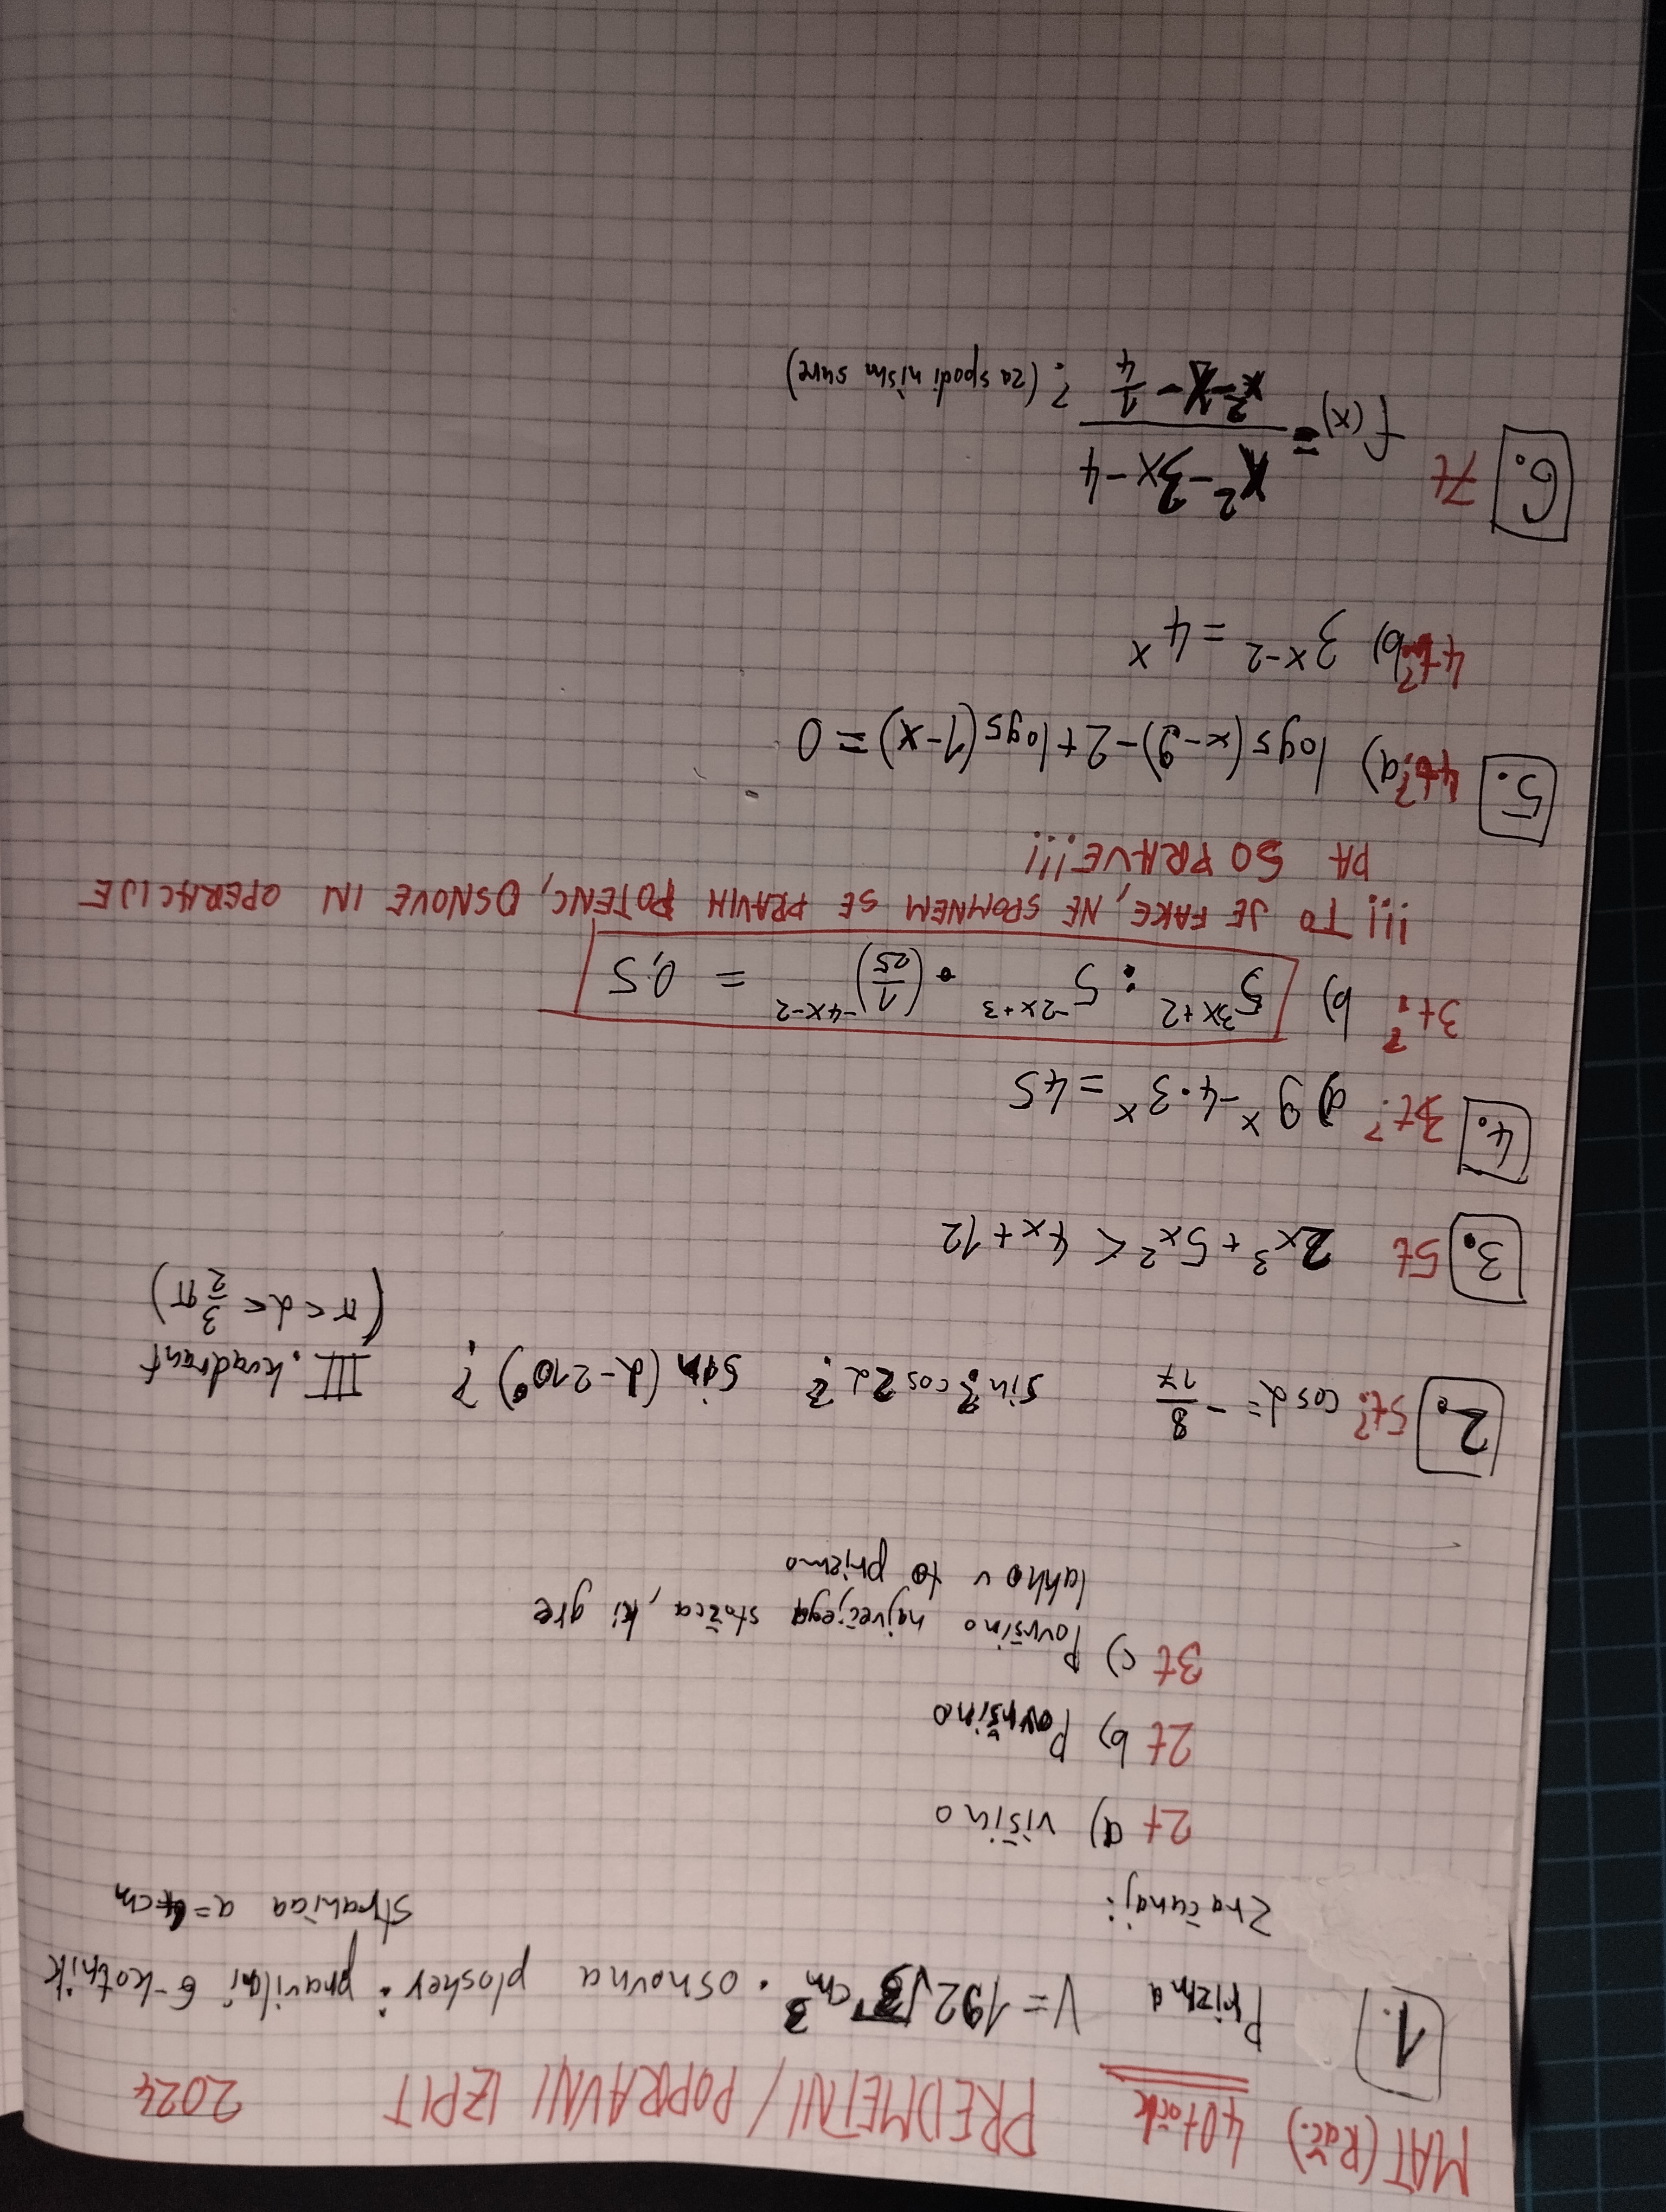 MAT (Rač.) 40 točk PREDMETNI / POPRAVNI IZPIT 2024
1. Prizma V = 192√3 cm³. osnovna ploskev: pravilni 6-kotnik
stranica a = 4 cm
Zračunaj:
2t a) višino
2t b) Površino
3t c) Površino največjega stožca, ki gre
lahko v to prizmo
2. 5t? cos α = -8/17 sin? cos2α? sin(α-210°)? III. kvadrant
(π < α < 3/2 π)
3. 5t 2x³ + 5x² < 4x + 12
4. 3t? a) 9ˣ - 4·3ˣ = 45
3t? b) 5^(3x+2) : 5^(-2x+3) · (1/25)^(-4x-2) = 0,5
!!! TO JE FAKE, NE SPOMNEM SE PRAVIH POTENC, OSNOVE IN OPERACIJE
PA SO PRAVE!!!
5. 4t? a) log₅(x-9) - 2 + log₅(1-x) = 0
4t? b) 3^(x-2) = 4^x
6. 7t f(x) = (x² - 3x - 4)/(x² - x - 1/4) ? (za spodi nism sure)